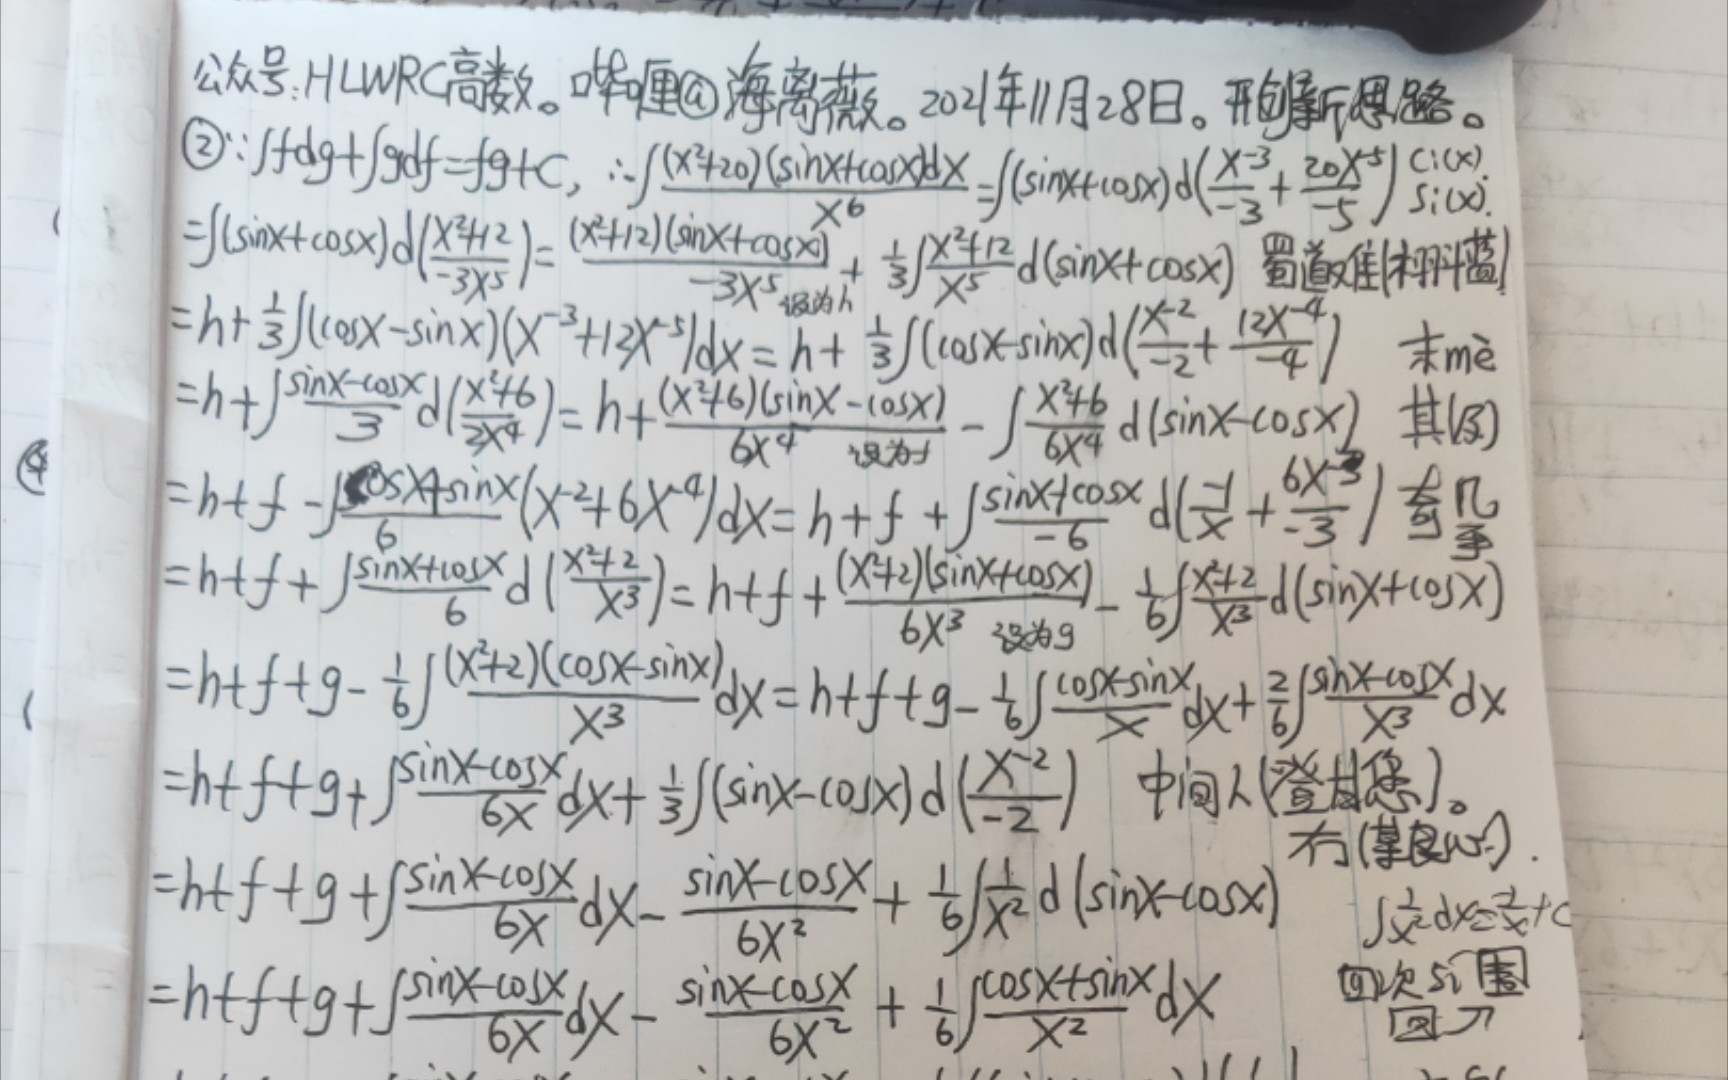 公众号:HLWRC高数。哔哩@海离薇。2021年11月28日。开创新思路。
②∵∫fdg+∫gdf=fg+C, ∴∫(x²+20)(sinx+cosx)dx/x⁶=∫(sinx+cosx)d(x⁻³/-3+20x⁻⁵/-5) Ci(x). Si(x).
=∫(sinx+cosx)d(x²+12/-3x⁵)=(x²+12)(sinx+cosx)/-3x⁵ 设为h+1/3∫x²+12/x⁵ d(sinx+cosx) 蜀道难
=h+1/3∫(cosx-sinx)(x⁻³+12x⁻⁵)dx=h+1/3∫(cosx-sinx)d(x⁻²/-2+12x⁻⁴/-4) 末mè
=h+∫sinx-cosx/3 d(x²+6/2x⁴)=h+(x²+6)(sinx-cosx)/6x⁴ 设为f-∫x²+6/6x⁴ d(sinx-cosx) 其
=h+f-∫cosx+sinx/6(x⁻²+6x⁻⁴)dx=h+f+∫sinx+cosx/-6 d(-1/x+6x⁻³/-3) 奇几
=h+f+∫sinx+cosx/6 d(x²+2/x³)=h+f+(x²+2)(sinx+cosx)/6x³ 设为g-1/6∫x²+2/x³ d(sinx+cosx)
=h+f+g-1/6∫(x²+2)(cosx-sinx)/x³ dx=h+f+g-1/6∫cosx-sinx/x dx+2/6∫sinx-cosx/x³ dx
=h+f+g+∫sinx-cosx/6x dx+1/3∫(sinx-cosx)d(x⁻²/-2) 中间人
=h+f+g+∫sinx-cosx/6x dx-sinx-cosx/6x²+1/6∫1/x² d(sinx-cosx)
=h+f+g+∫sinx-cosx/6x dx-sinx-cosx/6x²+1/6∫cosx+sinx/x² dx